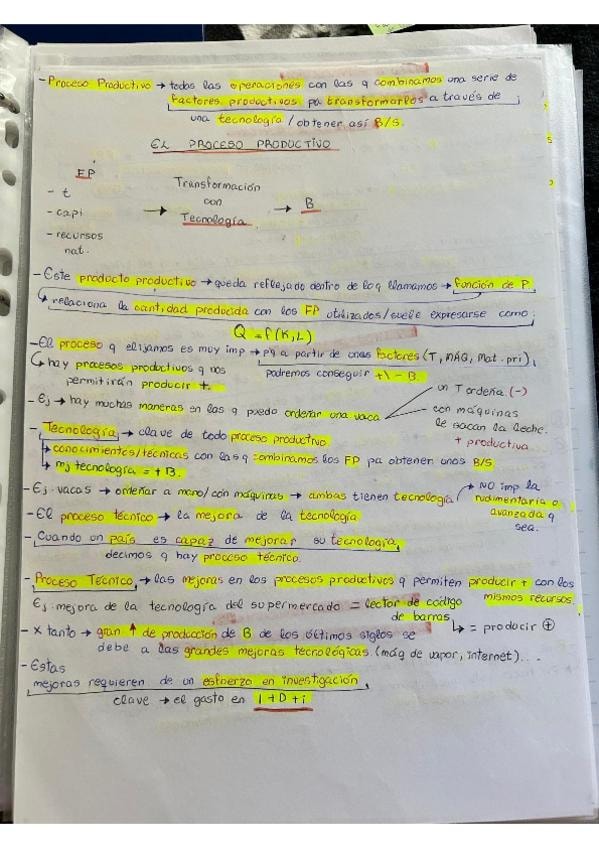 - Proceso Productivo → todas las operaciones con las q combinamos una serie de
factores productivos pa transformarlos a través de
una tecnología / obtener así B/S.
EL PROCESO PRODUCTIVO
FP
- t
- capi
- recursos
nat.
→ Transformación
con
Tecnología
→ B
- Este producto productivo → queda reflejado dentro de lo q llamamos → función de P.
↳ relaciona la cantidad producida con los FP utilizados / suele expresarse como:
Q = f(K,L)
- El proceso q elijamos es muy imp → pq a partir de unos factores (T, MÁQ, Mat. pri),
podremos conseguir +\- B.
↳ hay procesos productivos q nos
permitirán producir +.
- Ej → hay muchas maneras en las q puedo ordeñar una vaca
un T ordeña. (-)
con máquinas
le sacan la leche.
+ productiva
- Tecnología → clave de todo proceso productivo.
↳ conocimientos/técnicas con las q combinamos los FP pa obtener unos B/S
↳ mj tecnología = + B.
- Ej. vacas → ordeñar a mano/con máquinas → ambas tienen tecnología
→ NO imp la
rudimentaria o
avanzada q
sea.
- El proceso técnico → la mejora de la tecnología
- Cuando un país es capaz de mejorar su tecnología,
decimos q hay proceso técnico.
- Proceso Técnico → las mejoras en los procesos productivos q permiten producir + con los
mismos recursos.
Ej. mejora de la tecnología del supermercado = lector de código
de barras
↳ = producir +
- x tanto → gran ↑ de producción de B de los últimos siglos se
debe a las grandes mejoras tecnológicas. (máq de vapor, internet)...
- Estas
mejoras requieren de un esfuerzo en investigación,
clave → el gasto en I+D+i